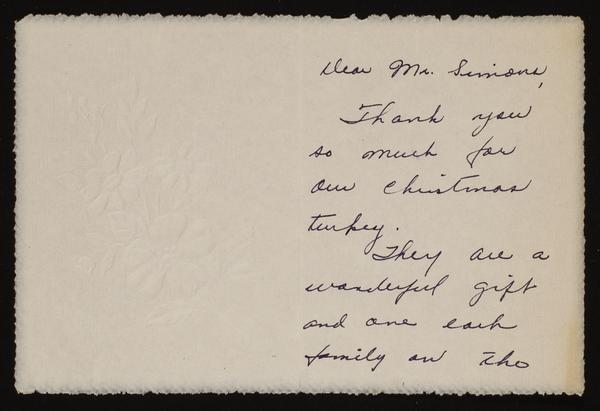 Dear Mr. Simons,
Thank you
so much for
our Christmas
turkey.
They are a
wonderful gift
and one each
family on the